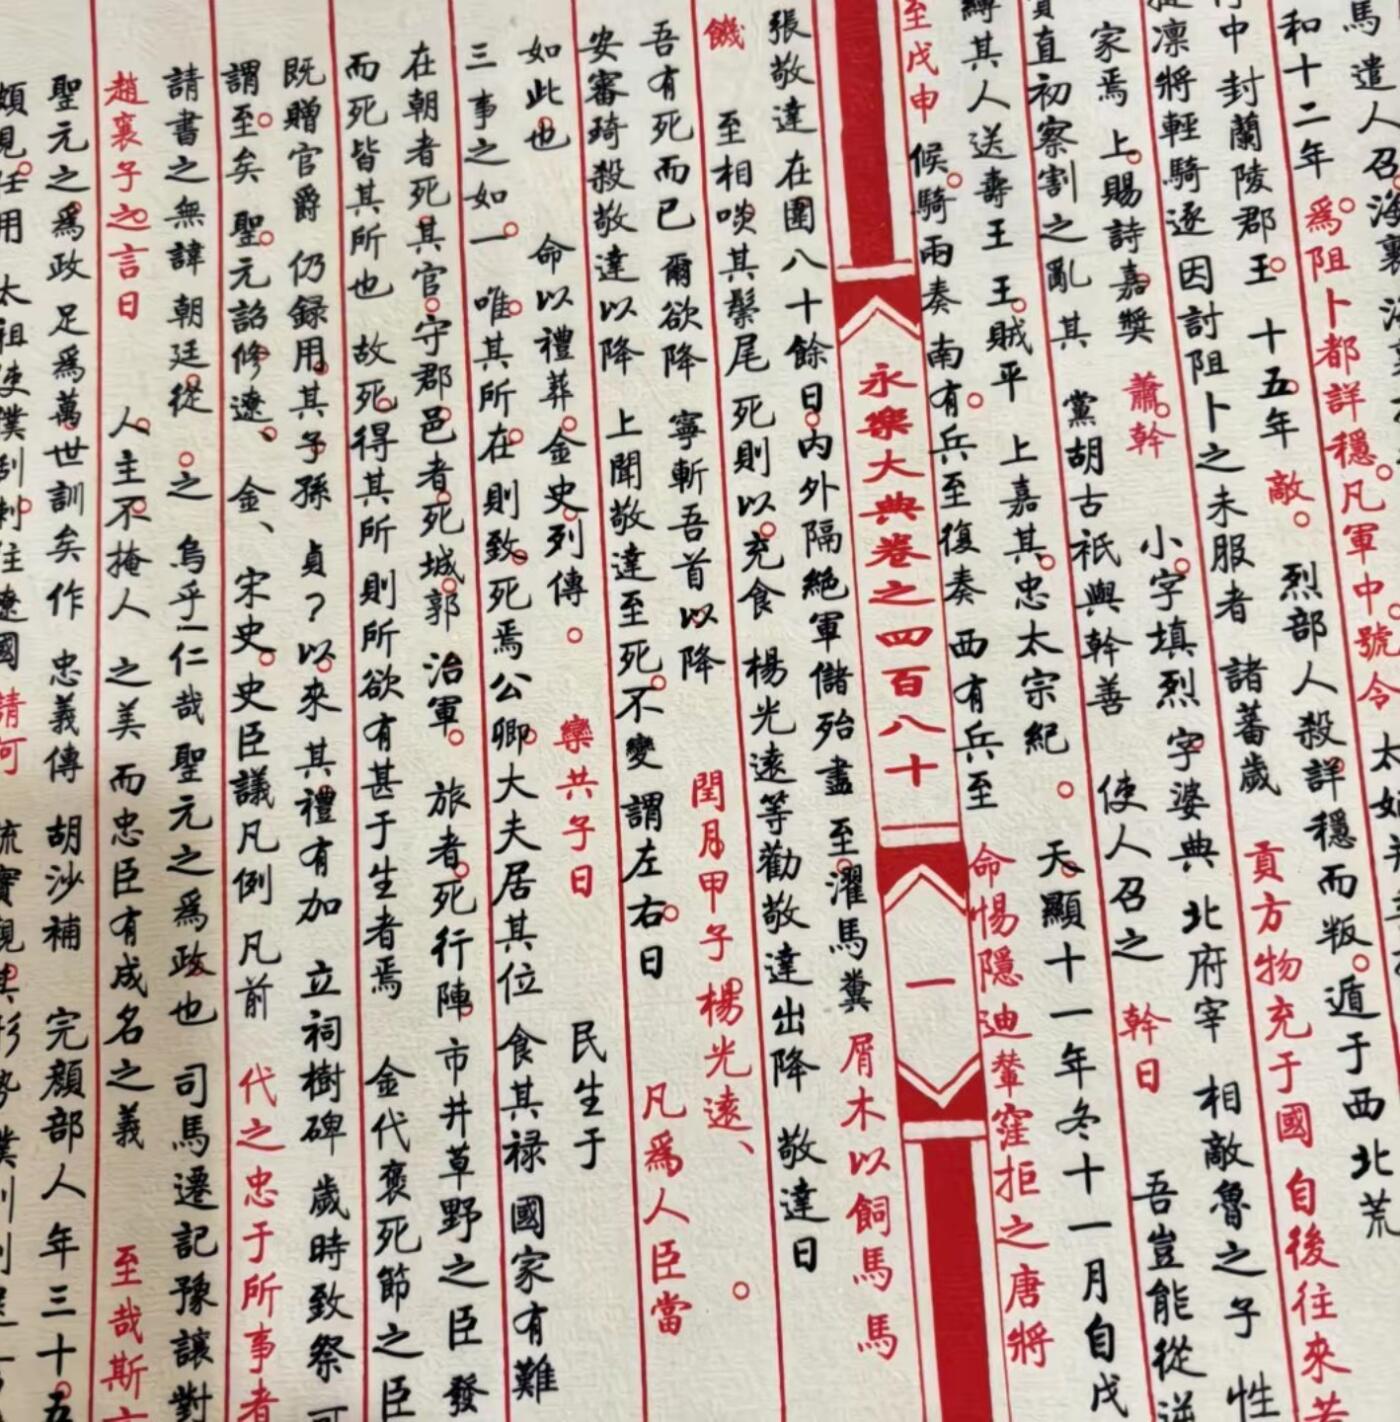 馬遣人召
和十二年 爲阻卜都詳穩凡軍中號令
中封蘭陵郡王 十五年 敵 烈部人殺詳穩而叛 遁于西北荒
凛將輕騎逐 因討阻卜之未服者 諸蕃歲 貢方物充于國 自後往來若
家焉 上賜詩嘉獎 蕭幹 小字填烈 字婆典 北府宰 相敵魯之子 性
直初察割之亂 其 黨胡古祇與幹善 使人召之 幹曰 吾豈能從逆
縛其人送壽王 王賊平 上嘉其忠 太宗紀 天顯十一年冬十一月自戊
至戊申 候騎兩奏 南有兵至 復奏 西有兵至 命惕隱迪輦窪拒之唐將
永樂大典卷之四百八十 一
張敬達 在圍八十餘日 內外隔絕 軍儲殆盡 至濯馬糞 屑木以飼馬 馬
饑 至相啖其鬃尾 死則以充食 楊光遠等勸敬達出降 敬達曰
吾有死而已 爾欲降 寧斬吾首以降 閏月甲子 楊光遠、
安審琦殺敬達以降 上聞敬達至死不變 謂左右曰 凡爲人臣當
如此也 命以禮葬 金史列傳 欒共子曰 民生于
三事之如一 唯其所在 則致死焉 公卿大夫居其位 食其祿 國家有難
在朝者死其官 守郡邑者死城郭 治軍 旅者死行陣 市井草野之臣 發
而死皆其所也 故死得其所 則所欲有甚于生者焉 金代褒死節之臣
既贈官爵 仍録用其子孫 貞?以來 其禮有加 立祠樹碑 歲時致祭 可
謂至矣 聖元詔修遼、金、宋史 史臣議凡例 凡前 代之忠于所事者
請書之無諱 朝廷從之 烏乎 仁哉聖元之爲政也 司馬遷記豫讓對
趙襄子之言曰 人主不掩人 之美 而忠臣有成名之義 至哉斯
聖元之爲政 足爲萬世訓矣 作 忠義傳 胡沙補 完顏部人 年三十五
頗見任用 太祖使僕刮剌往遼國 請阿